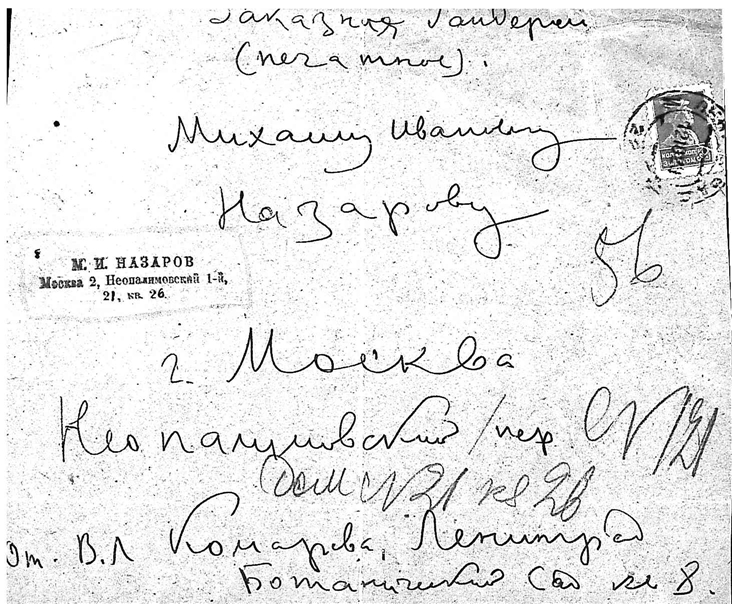 Заказная бандероль
(печатное).
Михаилу Ивановичу
Назарову
56
М. И. НАЗАРОВ
Москва 2, Неопалимовский 1-й,
21, кв. 26.
г. Москва
Неопалимовский / пер №121
дом №21 кв 26
От. В.Л Комарова, Ленинград
Ботанический Сад кв 8.